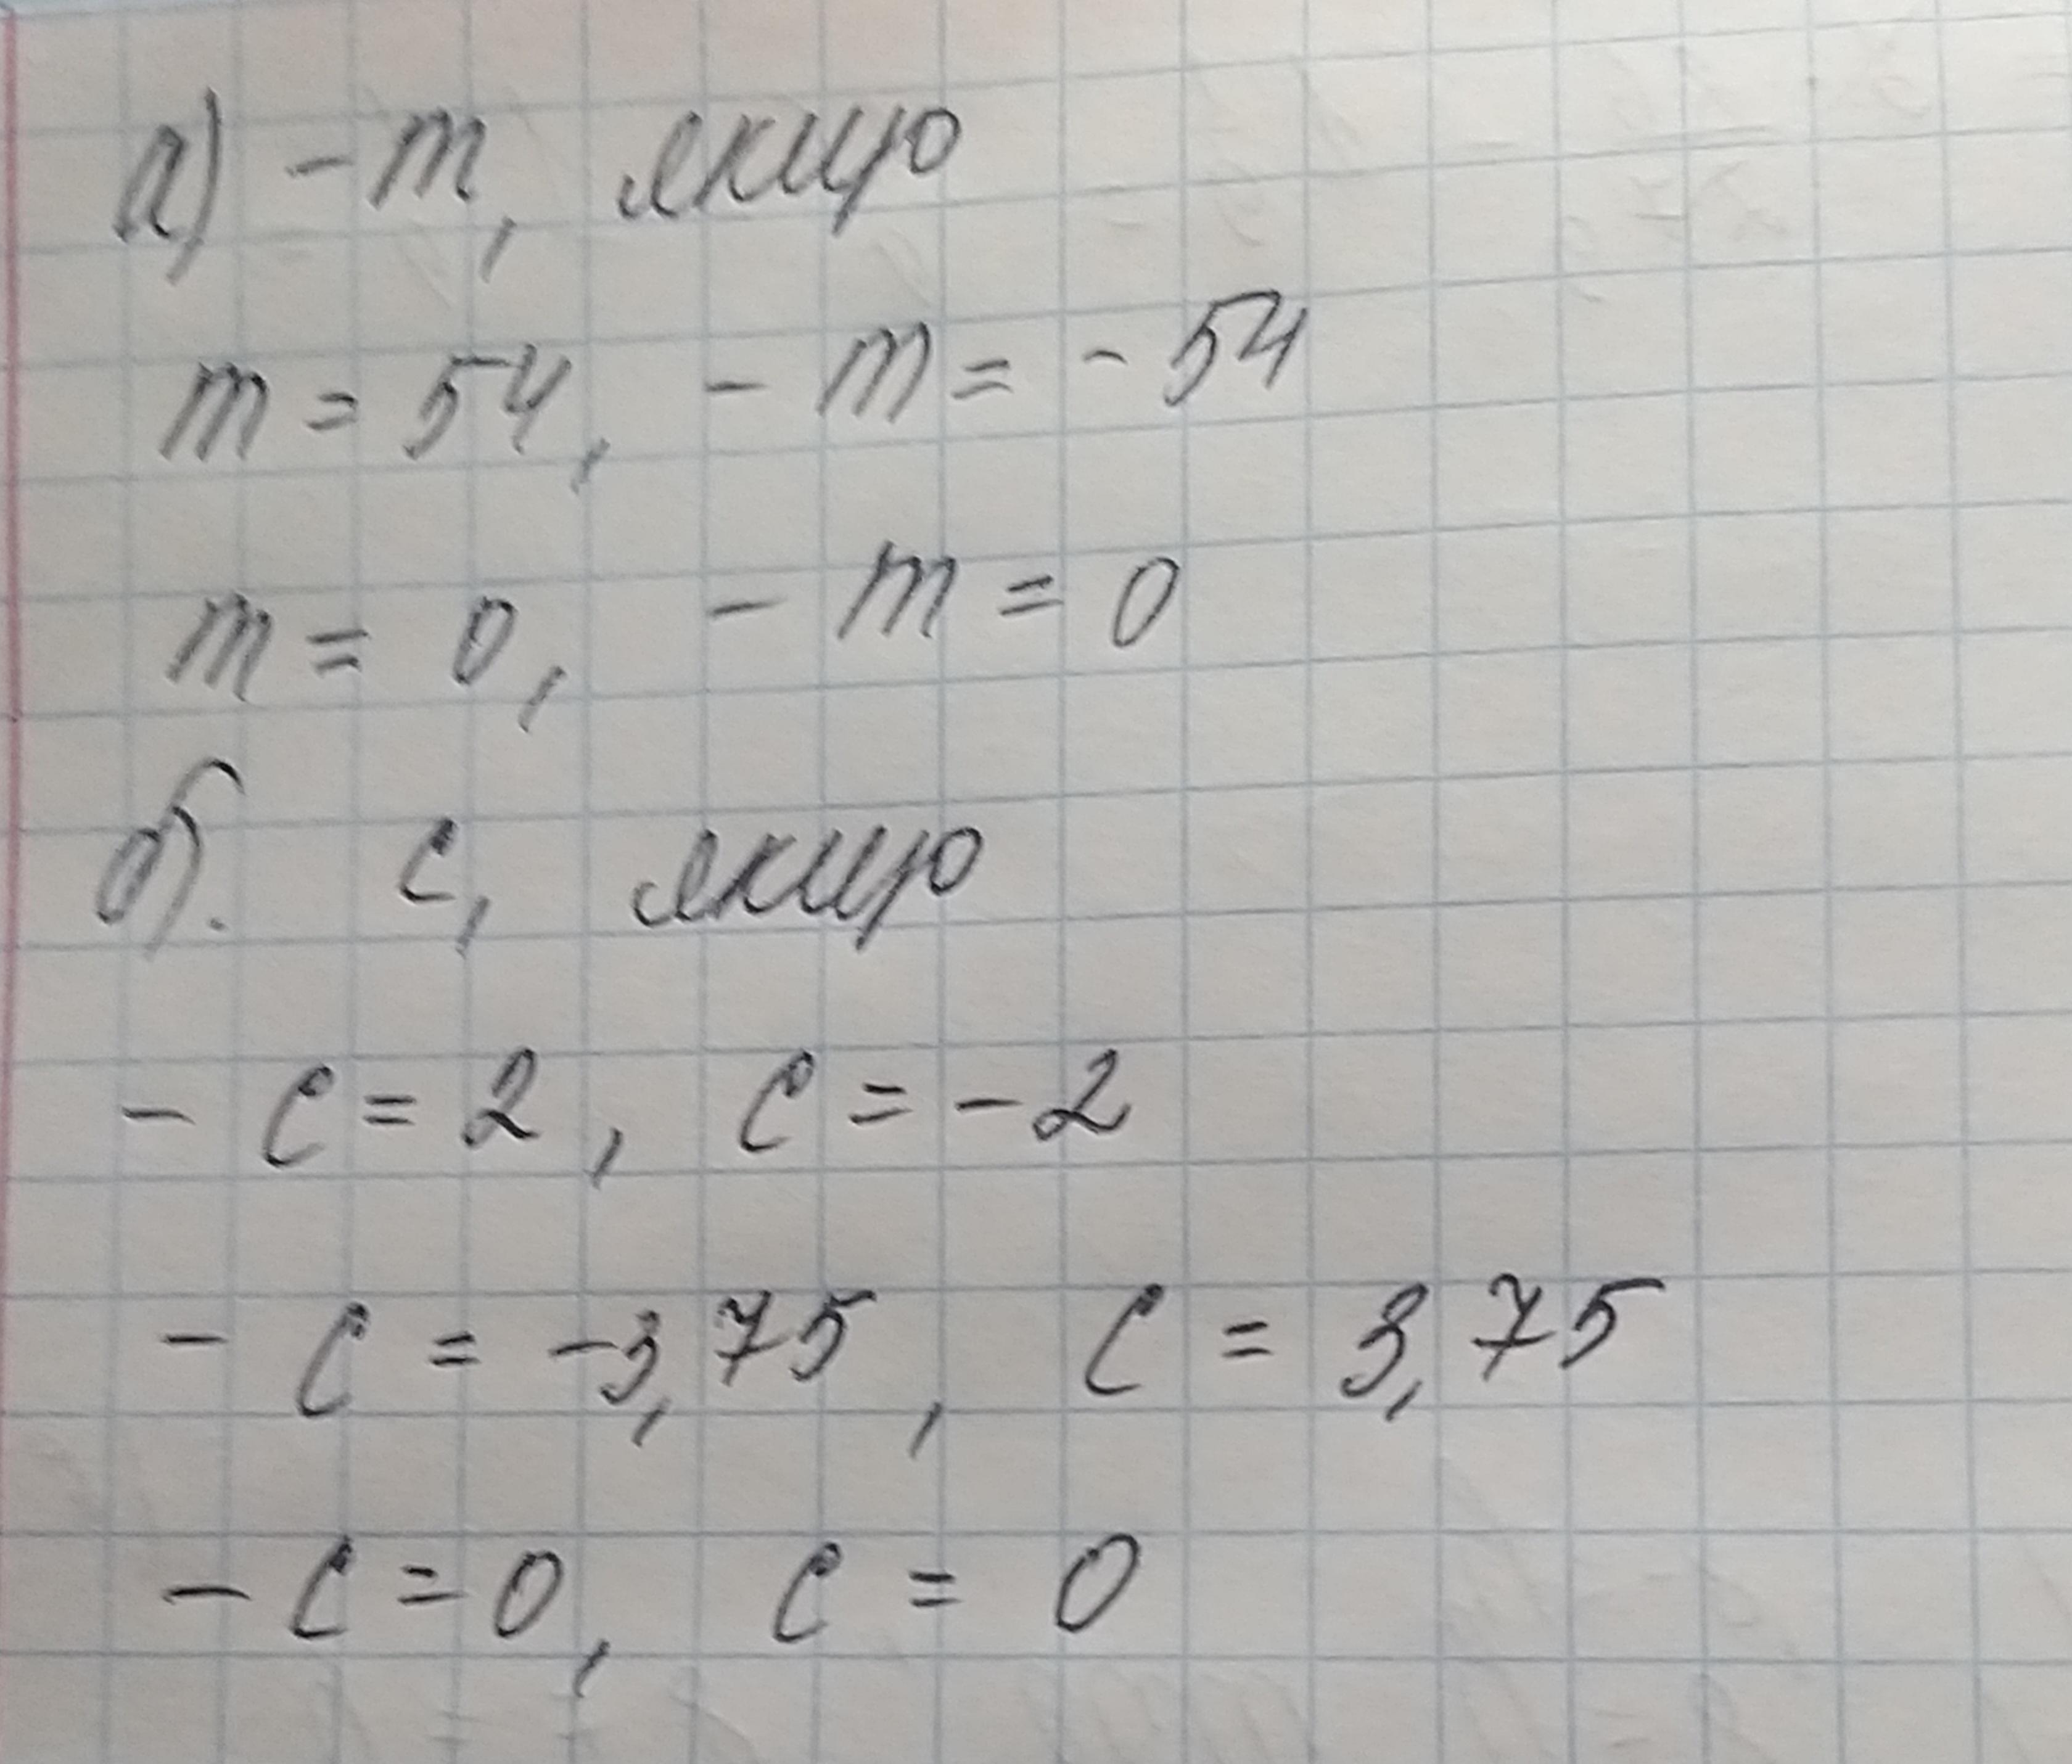 а) -m, якщо
m = 54, - m = - 54
m = 0, - m = 0
б). c, якщо
- c = 2, c = - 2
- c = -3,75, c = 3,75
- c = 0, c = 0